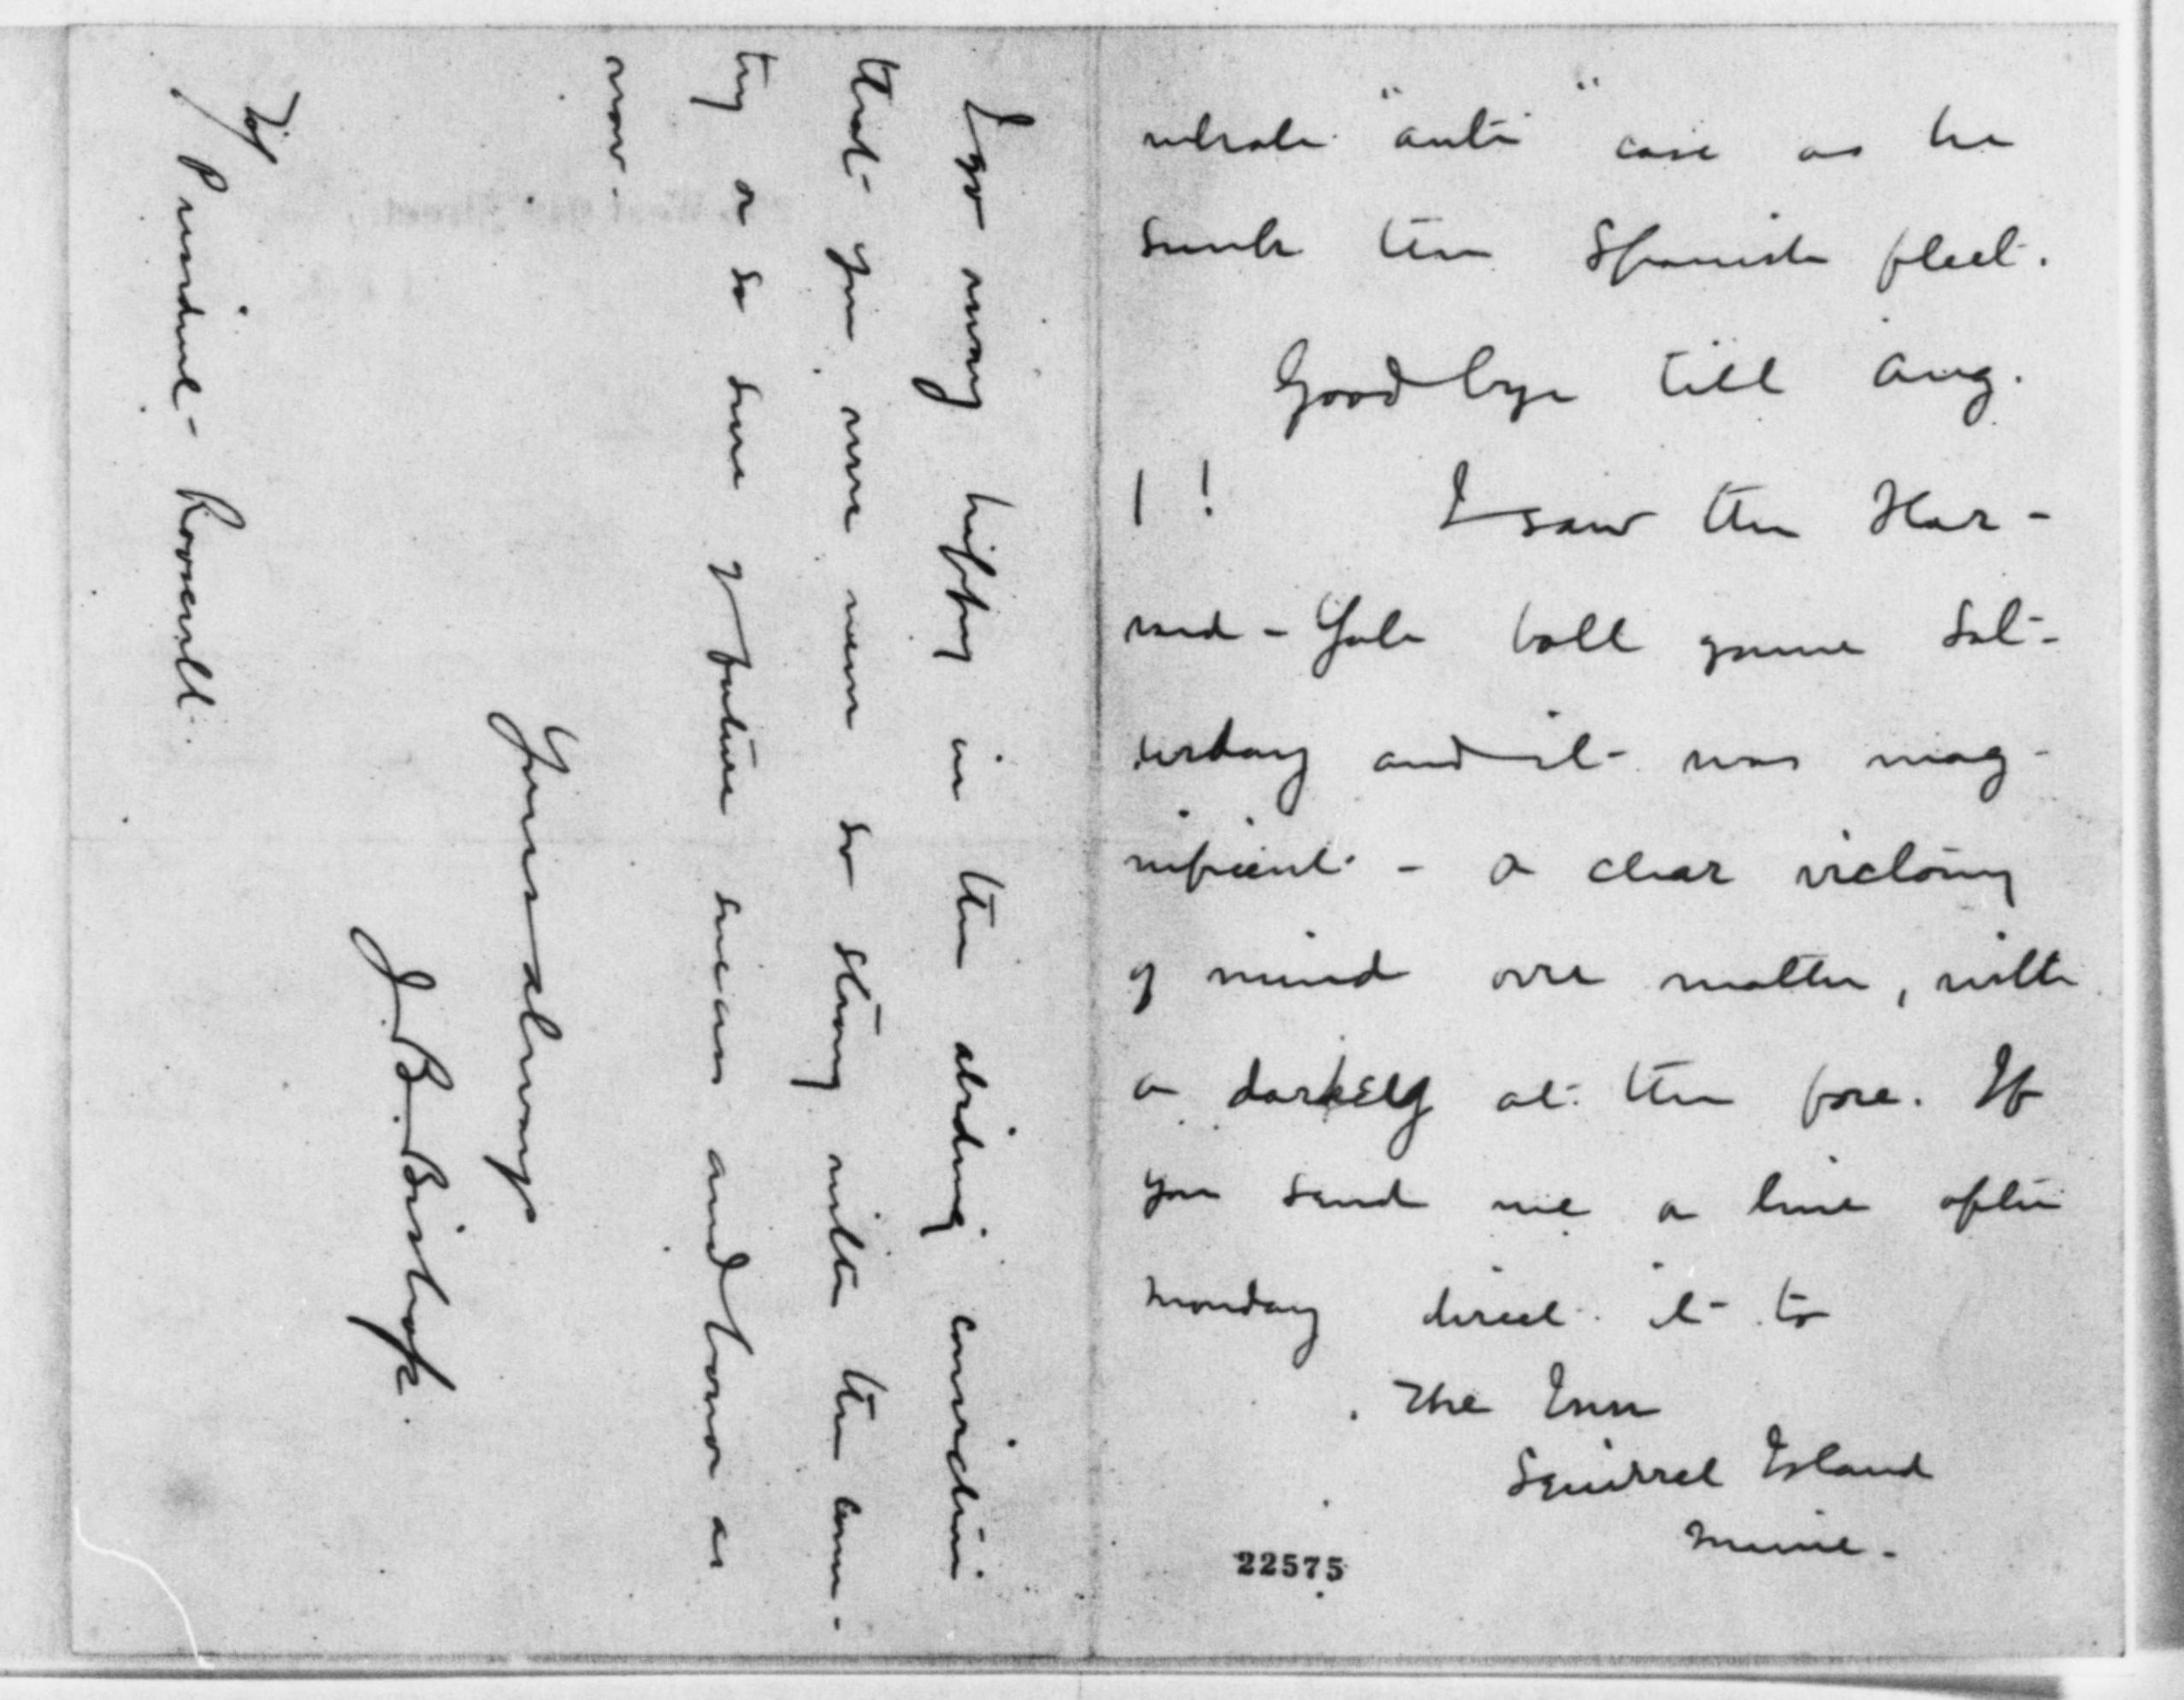 whole "anti" case as he
sunk the Spanish fleet.
Good bye till Aug.
! ! I saw the Har-
vard-Yale ball game Sat-
urday and it was mag-
nificent - a clear victory
of mind over matter, with
a darkey at the fore. If
you send me a line after
Monday direct it to
The Inn
Squirrel Island
Maine.
22575
I go away happy in the abiding conviction
that you were never so strong with the coun-
try or so sure of future success and honor as
now.
Yours always
J. B. Bishop.
To/
President Roosevelt.